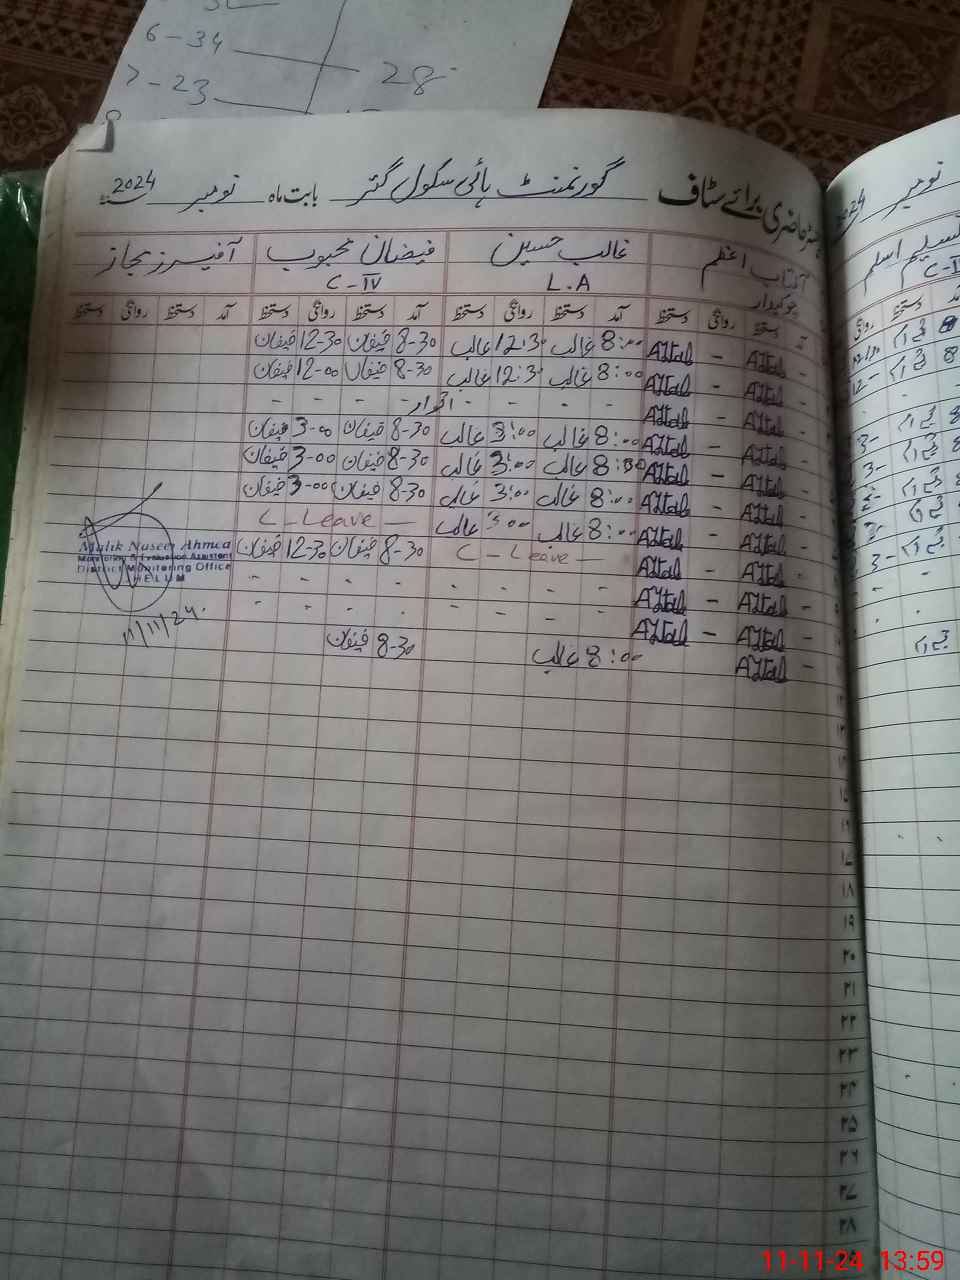 6 - 34
28
7 - 23
رجسٹر حاضری برائے سٹاف گورنمنٹ ہائی سکول گٹر بابت ماہ نومبر 2024
آفتاب اعظم غالب حسین فیضان محبوب آفیسرز مجاز
چوکیدار L.A C-IV
آمد دستخط روانگی دستخط آمد دستخط روانگی دستخط آمد دستخط روانگی دستخط آمد دستخط روانگی دستخط
- Aftab - Aftab 8:00 غالب 12:30 غالب 8-30 فیضان 12-30 فیضان
- Aftab - Aftab 8:00 غالب 12:30 غالب 8-30 فیضان 12-00 فیضان
- Aftab - Aftab - - - اتوار - - - -
- Aftab - Aftab 8:00 غالب 3:00 غالب 8-30 فیضان 3-00 فیضان
- Aftab - Aftab 8:00 غالب 3:00 غالب 8-30 فیضان 3-00 فیضان
- Aftab - Aftab 8:00 غالب 3:00 غالب 8-30 فیضان 3-00 فیضان
- Aftab - Aftab 8:00 غالب 3:00 غالب C - Leave -
- Aftab - Aftab C - Leave - 8-30 فیضان 12-30 فیضان
- Aftab - Aftab - - - - - - - -
- Aftab - Aftab - - - - - - -
- Aftab 8:00 غالب 8-30 فیضان
Malik Naseer Ahmed
Monitoring & Evaluation Assistant
District Monitoring Office
JHELUM
11/11/24
۱۸
۱۹
۲۰
۲۱
۲۲
۲۳
۲۴
۲۵
۲۶
۲۷
۲۸
نومبر 2024
تسلیم اسلم
11-11-24 13:59